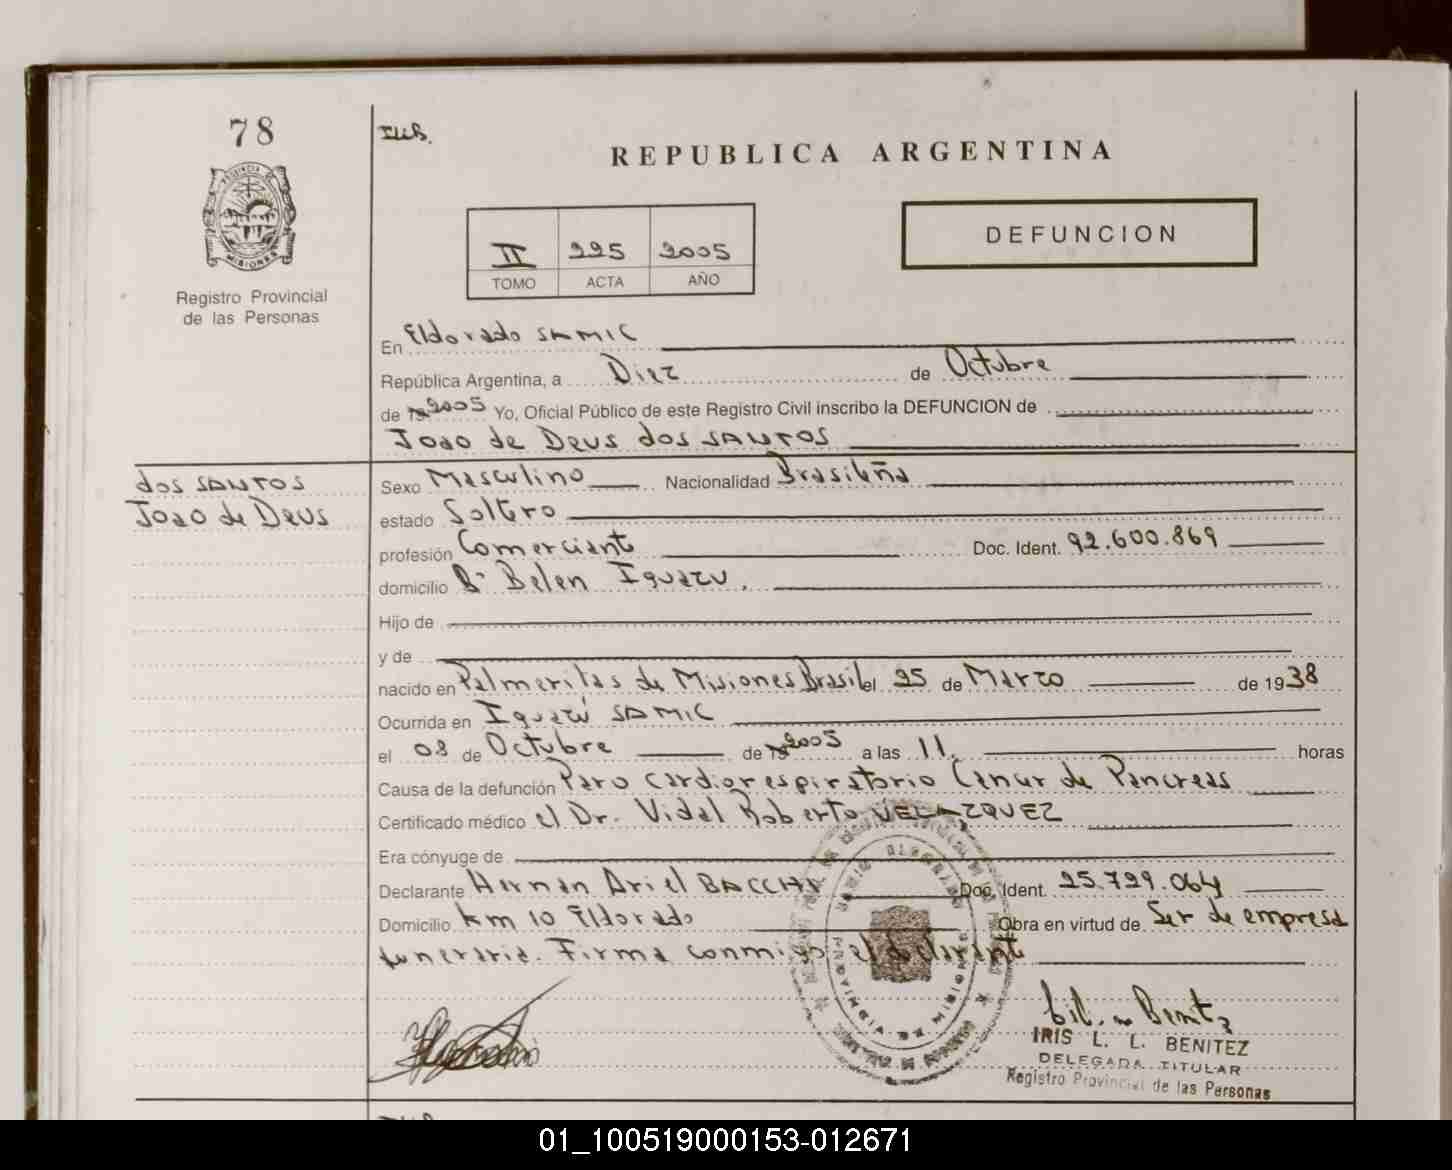 78
ILLB.
REPUBLICA ARGENTINA
PROVINCIA DE
MISIONES
Registro Provincial
de las Personas
II 225 2005
TOMO ACTA AÑO
DEFUNCION
En Eldorado SAMIC
República Argentina, a Diez de Octubre
de 19 2005 Yo, Oficial Público de este Registro Civil inscribo la DEFUNCION de
Joao de Deus dos SANTOS
dos SANTOS
Joao de Deus
Sexo Masculino Nacionalidad Brasileña
estado Soltero
profesión Comerciante Doc. Ident. 92.600.869
domicilio Bº Belen Iguazu.
Hijo de
y de
nacido en Palmeritas de Misiones Brasil el 25 de Marzo de 1938
Ocurrida en Iguazú SAMIC
el 08 de Octubre de 19 2005 a las 11. horas
Causa de la defunción Paro cardiorespiratorio Cancer de Pancreas
Certificado médico el Dr. Vidal Roberto VELAZQUEZ
Era cónyuge de
Declarante Hernan Ariel BACCHI Doc. Ident. 25.729.064
Domicilio km 10 Eldorado Obra en virtud de Ser de empresa
funeraria. Firma conmigo el declarante
PROVINCIA DE MISIONES
IRIS L. L. BENITEZ
DELEGADA TITULAR
Registro Provincial de las Personas
01_100519000153-012671